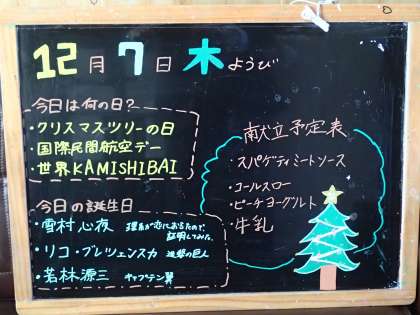 12月7日木ようび
今日は何の日?
・クリスマスツリーの日
・国際民間航空デー
・世界KAMISHIBAI
今日の誕生日
・雪村心夜 理系が恋に落ちたので、
証明してみた。
・リコ・ブレツェンスカ 進撃の巨人
・若林源三 キャプテン翼
献立予定表
・スパゲティミートソース
・コールスロー
・ピーチヨーグルト
・牛乳